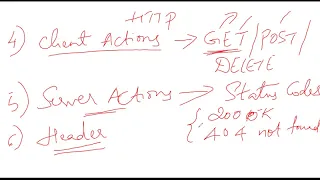 HTTP
4) Client Actions → GET / POST /
DELETE
5) Server Actions → Status Codes
{ 200 OK
6) Header { 404 not found